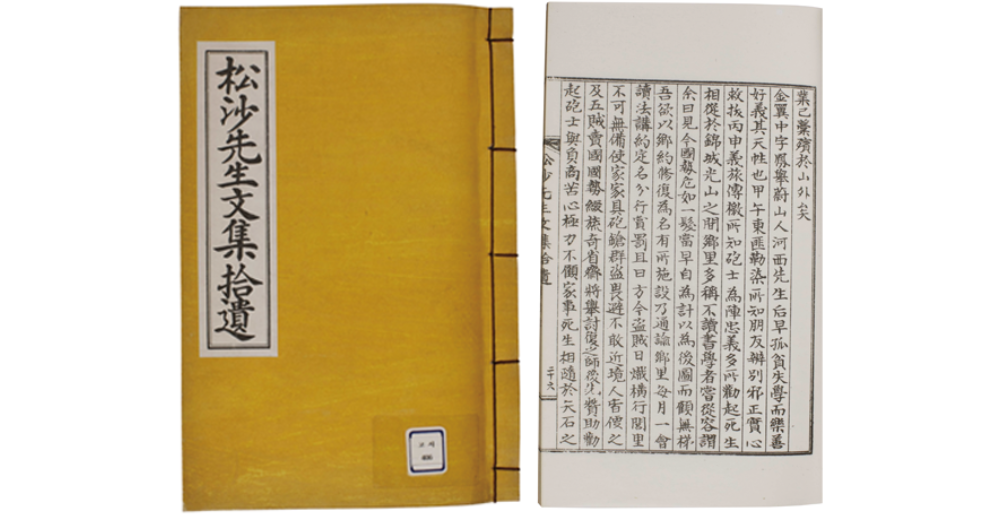 松沙先生文集拾遺
業已藁殯於山外矣
金翼中字翳舉蔚山人河西先生后早孤貧失學而樂善
好義其天性也甲午東匪勒染所知朋友辨別邪正實心
救拔丙申義旅傳檄所知砲士為陣忠義多所勸起死生
相從於錦城光山之間鄉里多稱不讀書學者嘗從容謂
余曰見今國勢危如一髮當早自為計以為後圖而顧無梯
吾欲以鄉約修復為名有所施設乃通諭鄉里每月一會
讀法講約定名分行賞罰且曰方今盜賊日熾橫行閭里
不可無備使家家具砲鎗群盜畏避不敢近境人害便之
及五賊賣國國勢綴旒奇省齋將舉討復之師後先贊助勸
起砲士與負商苦心極力不顧家事死生相隨於矢石之
松沙先生文集拾遺
二十九
고서